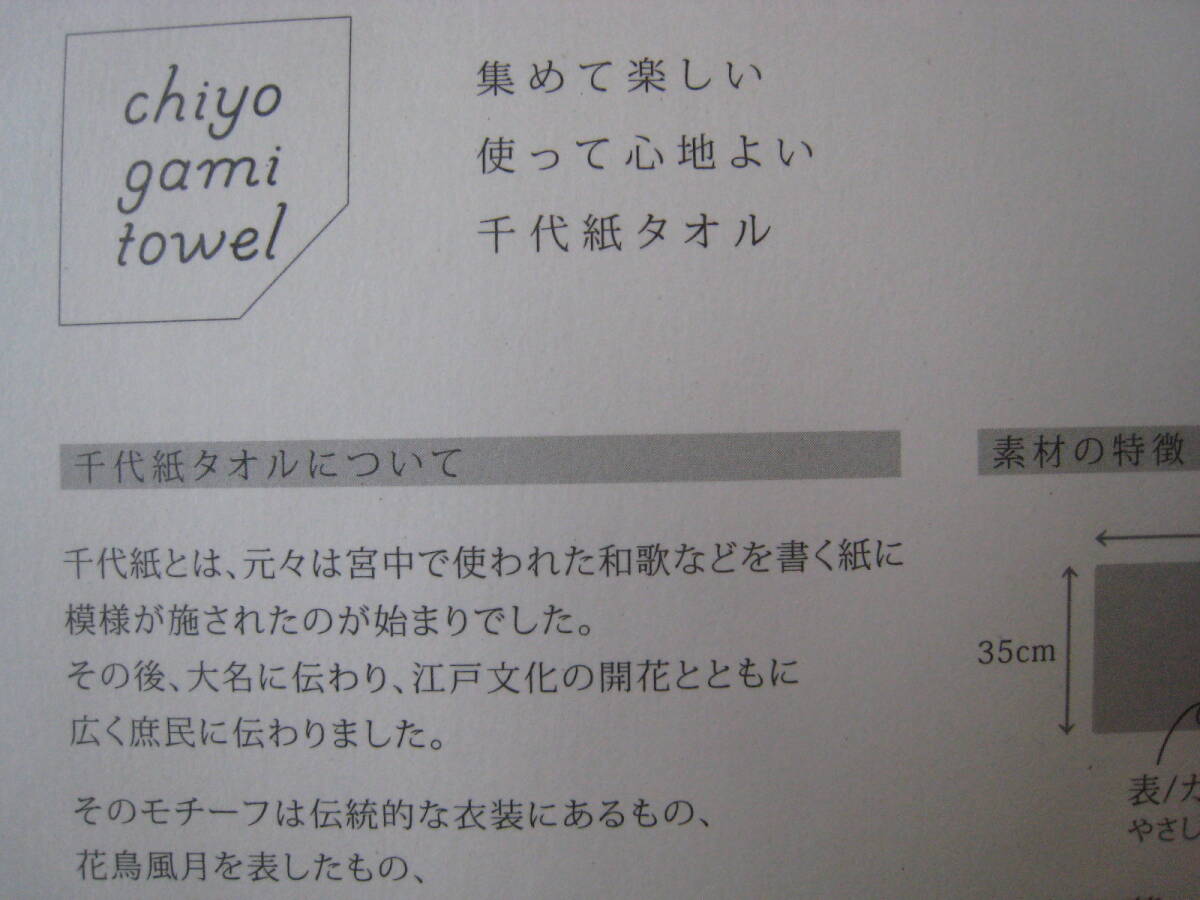 chiyo
gami
towel
集めて楽しい
使って心地よい
千代紙タオル
千代紙タオルについて
千代紙とは、元々は宮中で使われた和歌などを書く紙に
模様が施されたのが始まりでした。
その後、大名に伝わり、江戸文化の開花とともに
広く庶民に伝わりました。
そのモチーフは伝統的な衣装にあるもの、
花鳥風月を表したもの、
素材の特徴
35cm
表/ガ
やさし